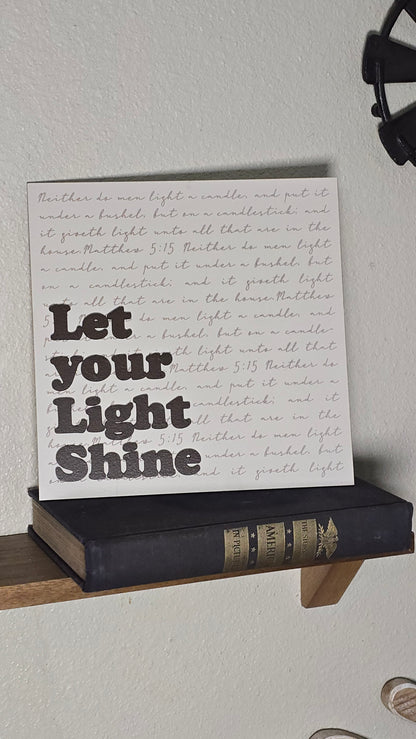 Neither do men light a candle, and put it
under a bushel, but on a candlestick; and
it giveth light unto all that are in the
house.Matthew 5:15 Neither do men light
a candle, and put it under a bushel, but
on a candlestick; and it giveth light
unto all that are in the house.Matthew
5: do men light a candle, and put
a bushel, but on a candle-
light unto all that
Matthew 5:15 Neither do
men light a candle, and put it under a
candlestick; and it
all that are in the
house. 5:15 Neither do men light
under a bushel, but
and it giveth light
Let
your
Light
Shine
THE STORY OF
AMERICA
IN PICTURES